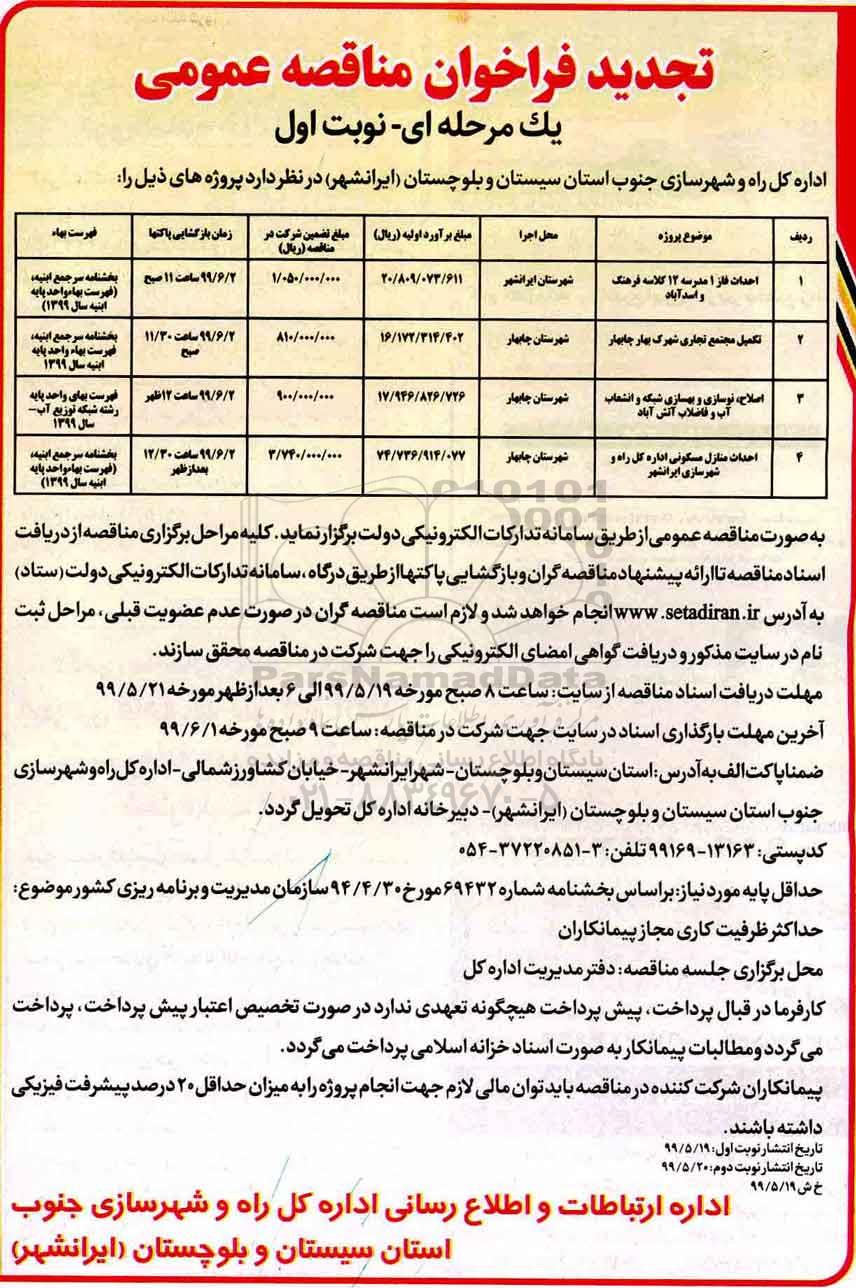 تجدید فراخوان مناقصه عمومی
یك مرحله ای- نوبت اول
اداره کل راه و شهرسازی جنوب استان سیستان و بلوچستان (ایرانشهر) در نظر دارد پروژه های ذیل را:
ردیف موضوع پروژه محل اجرا مبلغ برآورد اولیه (ریال) مبلغ تضمین شرکت در مناقصه (ریال) زمان بازگشایی پاکتها فهرست بهاء
۱ احداث فاز ۱ مدرسه ۱۲ کلاسه فرهنگ و اسدآباد شهرستان ایرانشهر ۲۰/۸۰۹/۰۷۳/۶۱۱ ۱/۰۵۰/۰۰۰/۰۰۰ ۹۹/۶/۲ ساعت ۱۱ صبح بخشنامه سرجمع ابنیه، (فهرست بهاءواحد پایه ابنیه سال ۱۳۹۹)
۲ تکمیل مجتمع تجاری شهرک بهار چابهار شهرستان چابهار ۱۶/۱۷۲/۳۱۴/۴۰۲ ۸۱۰/۰۰۰/۰۰۰ ۹۹/۶/۲ ساعت ۱۱/۳۰ صبح بخشنامه سرجمع ابنیه، فهرست بهاء واحد پایه ابنیه سال ۱۳۹۹
۳ اصلاح، نوسازی و بهسازی شبکه و انشعاب آب و فاضلاب آتش آباد شهرستان چابهار ۱۷/۹۴۶/۸۲۶/۷۲۶ ۹۰۰/۰۰۰/۰۰۰ ۹۹/۶/۲ ساعت ۱۲ظهر فهرست بهای واحد پایه رشته شبکه توزیع آب– سال ۱۳۹۹
۴ احداث منازل مسکونی اداره کل راه و شهرسازی ایرانشهر شهرستان چابهار ۷۴/۷۳۶/۹۱۴/۰۷۷ ۳/۷۴۰/۰۰۰/۰۰۰ ۹۹/۶/۲ ساعت ۱۲/۳۰ بعدازظهر بخشنامه سرجمع ابنیه، (فهرست بهاءواحد پایه ابنیه سال ۱۳۹۹)
به صورت مناقصه عمومی از طریق سامانه تدارکات الکترونیکی دولت برگزار نماید. کلیه مراحل برگزاری مناقصه از دریافت
اسناد مناقصه تا ارائه پیشنهاد مناقصه گران و بازگشایی پاکتها از طریق درگاه، سامانه تدارکات الکترونیکی دولت (ستاد)
به آدرس www.setadiran.ir انجام خواهد شد و لازم است مناقصه گران در صورت عدم عضویت قبلی، مراحل ثبت
نام در سایت مذکور و دریافت گواهی امضای الکترونیکی را جهت شرکت در مناقصه محقق سازند.
ParsNamadData
مهلت دریافت اسناد مناقصه از سایت: ساعت ۸ صبح مورخه ۹۹/۵/۱۹ الی ۶ بعدازظهر مورخه ۹۹/۵/۲۱
آخرین مهلت بارگذاری اسناد در سایت جهت شرکت در مناقصه: ساعت ۹ صبح مورخه ۹۹/۶/۱
پایگاه اطلاع رسانی مناقصه و مزایده
ضمنا پاکت الف به آدرس: استان سیستان و بلوچستان- شهر ایرانشهر- خیابان کشاورز شمالی- اداره کل راه و شهرسازی
۰۲۱-۸۸۳۴۹۶۷۰-۵
جنوب استان سیستان و بلوچستان (ایرانشهر)- دبیرخانه اداره کل تحویل گردد.
کدپستی: ۱۳۱۶۳-۹۹۱۶۹ تلفن: ۳-۳۷۲۲۰۸۵۱-۰۵۴
حداقل پایه مورد نیاز: براساس بخشنامه شماره ۶۹۴۳۲ مورخ ۹۴/۴/۳۰ سازمان مدیریت و برنامه ریزی کشور موضوع:
حداکثر ظرفیت کاری مجاز پیمانکاران
محل برگزاری جلسه مناقصه: دفتر مدیریت اداره کل
کارفرما در قبال پرداخت، پیش پرداخت هیچگونه تعهدی ندارد در صورت تخصیص اعتبار پیش پرداخت، پرداخت
می گردد و مطالبات پیمانکار به صورت اسناد خزانه اسلامی پرداخت می گردد.
پیمانکاران شرکت کننده در مناقصه باید توان مالی لازم جهت انجام پروژه را به میزان حداقل ۲۰ درصد پیشرفت فیزیکی
داشته باشند.
تاریخ انتشار نوبت اول: ۹۹/۵/۱۹
تاریخ انتشار نوبت دوم: ۹۹/۵/۲۰
خ ش ۹۹/۵/۱۹
اداره ارتباطات و اطلاع رسانی اداره کل راه و شهرسازی جنوب
استان سیستان و بلوچستان (ایرانشهر)